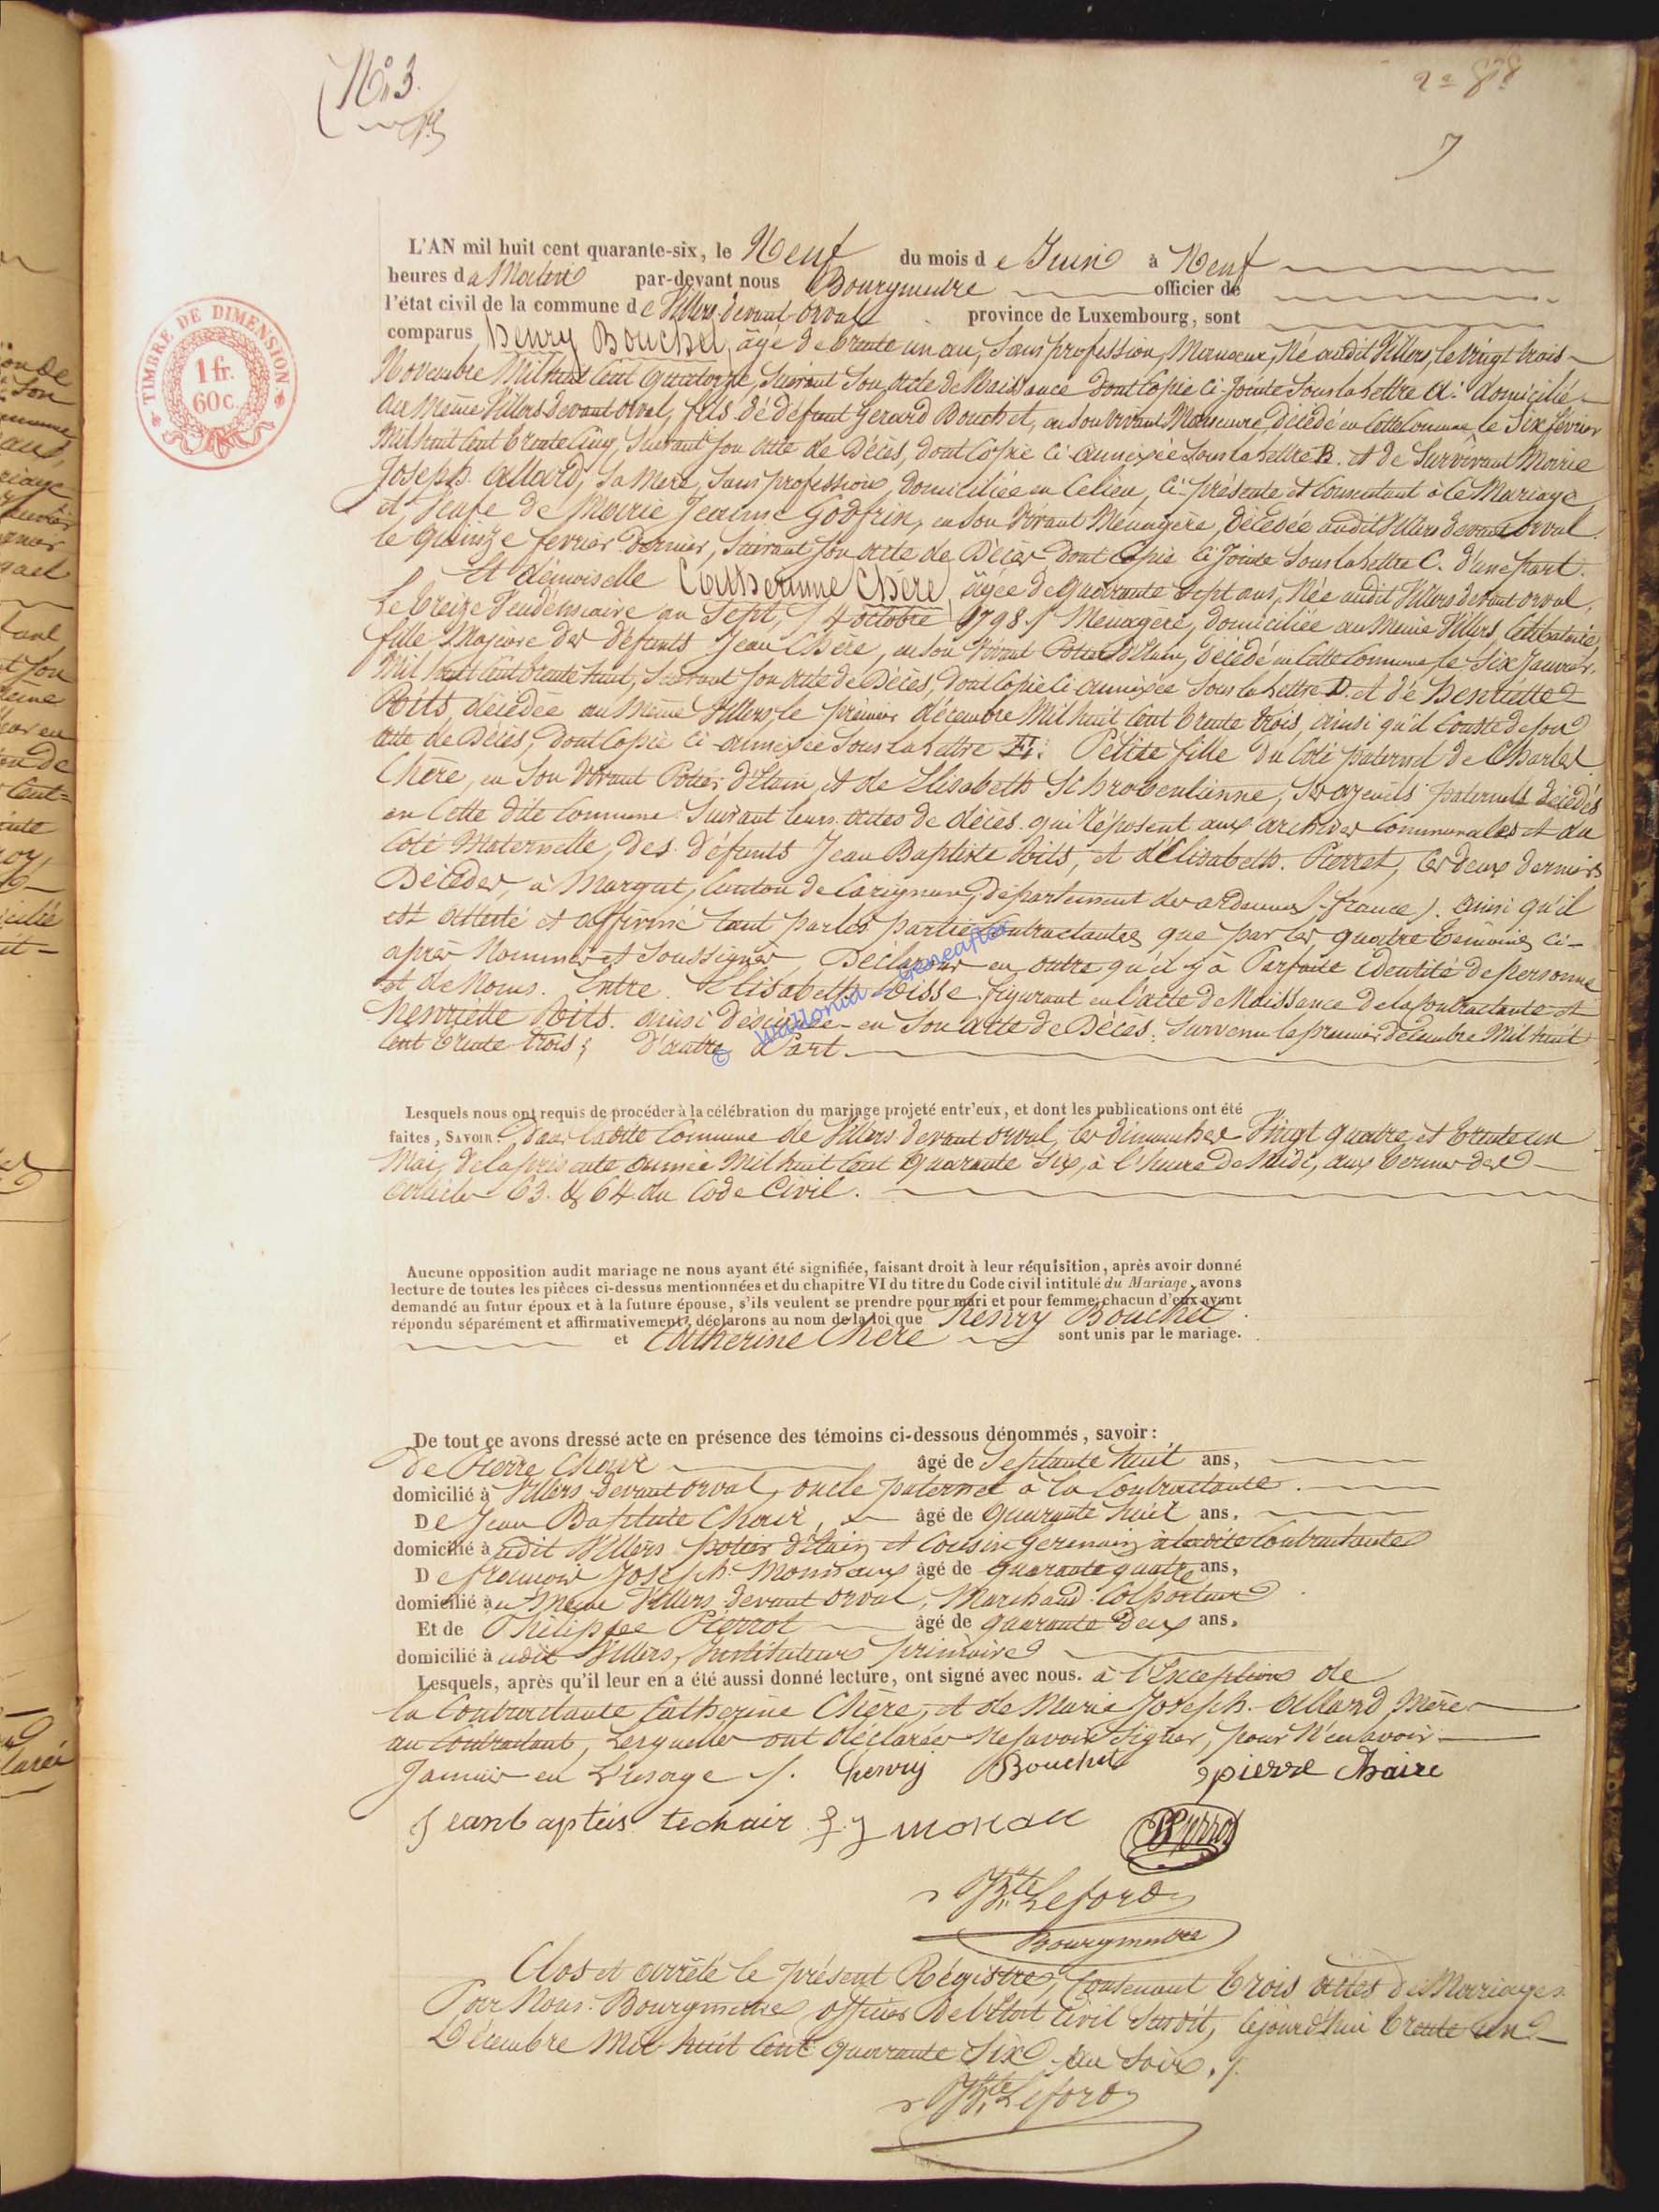 N° 3.
2e 8bre
7
TIMBRE DE DIMENSION
1 fr.
60 c.
L'AN mil huit cent quarante-six, le Neuf du mois de Juin à Neuf
heures du Matin par-devant nous Bourgmestre officier de
l'état civil de la commune de Villers devant orval province de Luxembourg, sont
comparus Henry Bouchet, âgé de trente un an, Sans profession, Manœuvre, Né audit Villers, le vingt trois
Novembre Mil huit Cent quatorze, Suivant Son acte de Naissance dont Copie Ci-Jointe Sous la lettre A: domicilié
au Meme Villers devant orval, fils dé défunt Gerard Bouchet, en son vivant Manœuvre, Décédé en Cette Commune le Six février
Mil huit Cent trente Cinq, Suivant Son acte de Décès, dont Copie Ci-annexée Sous la lettre B. et de Survivant Marie
Joseph Allard, Sa Mere, Sans profession, domiciliée en Ce lieu, Ci-présente et Consentant à Ce Mariage
et Veufe de Marie Jeanne Godfrin, en Son Vivant Ménagère, décédée audit Villers devant orval
le quinze fevrier dernier, Suivant Son acte de Décès dont Copie Ci Jointe Sous la lettre C. d'une part.
Et démoiselle Catherinne Chère, âgée de quarante Sept ans, Née audit Villers devant orval,
Le treize Vendémiaire an Sept, / 4 octobre 1798 / Menagère, domiciliée au Meme Villers, Celibataire,
fille Majeure des défunts Jean Chère, en Son Vivant Potier d'Etain, décédé en Cette Commune le Six Janvier
Mil huit Cent trente huit, Suivant Son acte de Décès, dont Copie Ci-annexée Sous la lettre D. et de Henriette
Poits, décédée au Même Villers, le premier décembre Mil huit Cent trente trois, ainsi qu'il Conste de Son
acte de Décès, dont Copie Ci-annexée Sous la lettre E. Petite fille du Coté paternel de Charles
Chère, en Son Vivant Potier d'Etain, et de Elisabeth Schrobenlienne, Ses ayeuils paternels décédés
en Cette dite Commune Suivant leurs actes de décès qui réposent aux archives Communales et du
Coté Maternelle, des défunts Jean Baptiste Poits, et d'Elisabeth Pierret, Ces deux derniers
Décédes, à Margut, Canton de Carignan, département des ardennes (france). ainsi qu'il
est attesté et affirmé tant par les parties Contractantes que par les quatre témoins Ci-
après Nommés et Soussignés, Déclarer en outre qu'il y à Parfaite identité de personne
et de Noms. Entre Elisabeth Voisse figurant en l'acte de Naissance de la Contractante et
Henriette Poits ainsi désignée en Son acte de Décès, Survenu le premier décembre Mil huit
Cent trente trois; d'autre Part.
© Wallonia - Geneafter
Lesquels nous ont requis de procéder à la célébration du mariage projeté entr'eux, et dont les publications ont été
faites, SAVOIR: Dans ladite Commune de Villers devant orval, les dimanches Vingt quatre et trente un
Mai, de la présente année Mil huit Cent quarante Six, à l'heure de Midi, aux termes des
articles 63. & 64. du Code Civil.
Aucune opposition audit mariage ne nous ayant été signifiée, faisant droit à leur réquisition, après avoir donné
lecture de toutes les pièces ci-dessus mentionnées et du chapitre VI du titre du Code civil intitulé du Mariage, avons
demandé au futur époux et à la future épouse, s'ils veulent se prendre pour mari et pour femme; chacun d'eux ayant
répondu séparément et affirmativement, déclarons au nom de la loi que Henry Bouchet
et Catherine Chère sont unis par le mariage.
De tout ce avons dressé acte en présence des témoins ci-dessous dénommés, savoir:
De Pierre Chair âgé de Septante huit ans,
domicilié à Villers devant orval, oncle paternel à la Contractante.
De Jean Baptiste Chair, âgé de quarante huit ans,
domicilié audit Villers potier d'Etain et Cousin Germain à ladite Contractante
De francois Joseph Monseaux âgé de quarante quatre ans,
domicilié au Meme Villers devant orval, Marchand Colporteur
Et de Philippe Pierrot âgé de quarante Deux ans,
domicilié audit Villers, Instituteur primaire
Lesquels, après qu'il leur en a été aussi donné lecture, ont signé avec nous. à l'Exception de
la Contractante Catherine Chère, et de Marie Joseph Allard Mère
au Contractant, Lesquelles ont déclarées Ne Savoir Signer, pour N'en avoir
Jamais eu L'usage /. henry Bouchet pierre Chaire
Jeanbaptéis techair f. J monau PPierrot
JBte. Leford
Bourgmestre
Clos et arrêté le présent Régistre, Contenant trois actes de Mariages
Par Nous Bourgmestre officier de l'Etat Civil Susdit, Cejourd'hui trente un
Décembre Mil huit Cent quarante Six au Soir. /.
JBte. Leford